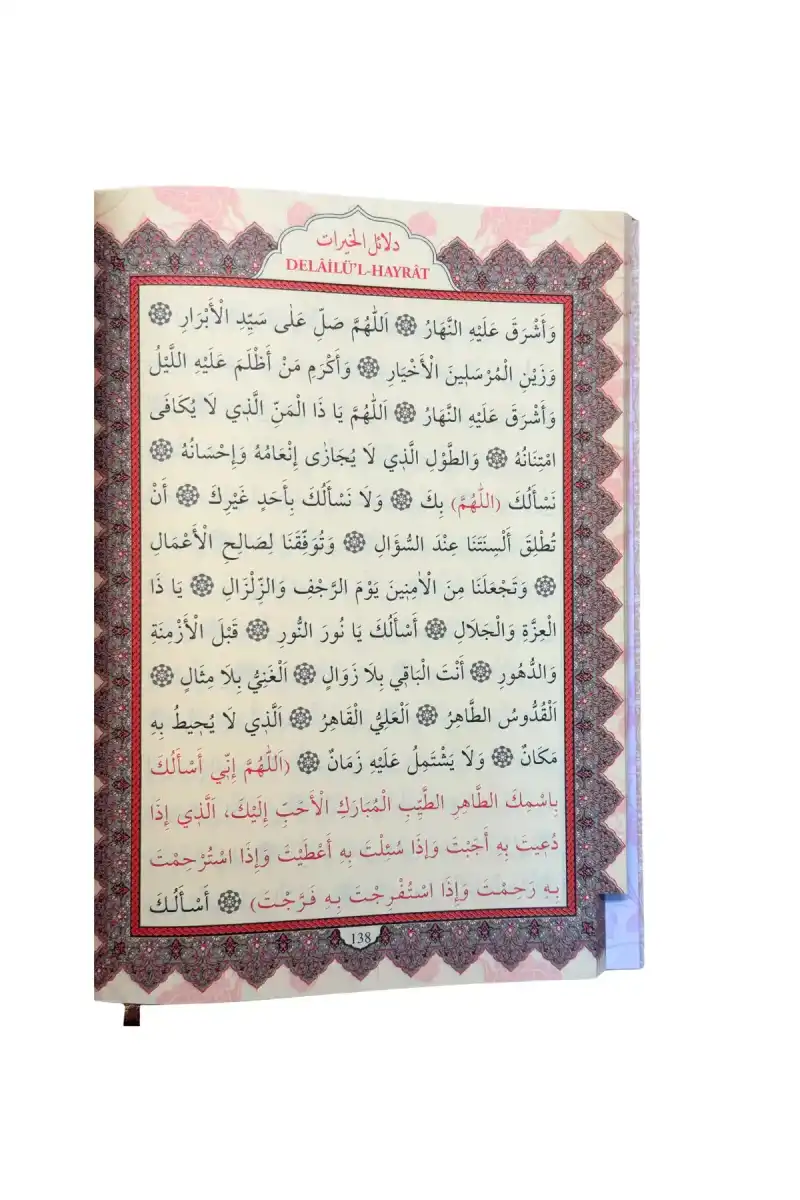 دلائل الخيرات
DELÂİLÜ’L-HAYRÂT
وَأَشْرَقَ عَلَيْهِ النَّهَارُ ۞ اَللّٰهُمَّ صَلِّ عَلٰى سَيِّدِ الْأَبْرَارِ ۞
وَزَيْنِ الْمُرْسَلِينَ الْأَخْيَارِ ۞ وَأَكْرَمِ مَنْ أَظْلَمَ عَلَيْهِ اللَّيْلُ
وَأَشْرَقَ عَلَيْهِ النَّهَارُ ۞ اَللّٰهُمَّ يَا ذَا الْمَنِّ الَّذِي لَا يُكَافَى
امْتِنَانُهُ ۞ وَالطَّوْلِ الَّذِي لَا يُجَازٰى إِنْعَامُهُ وَإِحْسَانُهُ ۞
نَسْأَلُكَ (اللّٰهُمَّ) بِكَ ۞ وَلَا نَسْأَلُكَ بِأَحَدٍ غَيْرِكَ ۞ أَنْ
تُطْلِقَ أَلْسِنَتَنَا عِنْدَ السُّؤَالِ ۞ وَتُوَفِّقَنَا لِصَالِحِ الْأَعْمَالِ
۞ وَتَجْعَلَنَا مِنَ الْاٰمِنِينَ يَوْمَ الرَّجْفِ وَالزِّلْزَالِ ۞ يَا ذَا
الْعِزَّةِ وَالْجَلَالِ ۞ أَسْأَلُكَ يَا نُورَ النُّورِ ۞ قَبْلَ الْأَزْمِنَةِ
وَالدُّهُورِ ۞ أَنْتَ الْبَاقِي بِلَا زَوَالٍ ۞ اَلْغَنِيُّ بِلَا مِثَالٍ ۞
اَلْقُدُّوسُ الطَّاهِرُ ۞ اَلْعَلِيُّ الْقَاهِرُ ۞ اَلَّذِي لَا يُحِيطُ بِهِ
مَكَانٌ ۞ وَلَا يَشْتَمِلُ عَلَيْهِ زَمَانٌ ۞ (اَللّٰهُمَّ إِنِّي أَسْأَلُكَ
بِاسْمِكَ الطَّاهِرِ الطَّيِّبِ الْمُبَارَكِ الْأَحَبِّ إِلَيْكَ، اَلَّذِي إِذَا
دُعِيتَ بِهِ أَجَبْتَ وَإِذَا سُئِلْتَ بِهِ أَعْطَيْتَ وَإِذَا اسْتُرْحِمْتَ
بِهِ رَحِمْتَ وَإِذَا اسْتُفْرِجْتَ بِهِ فَرَّجْتَ) ۞ أَسْأَلُكَ
138